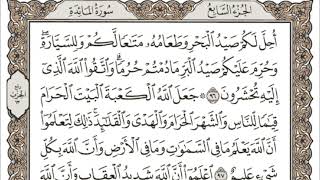 الجزء السابع
سورة المائدة
أُحِلَّ لَكُمْ صَيْدُ ٱلْبَحْرِ وَطَعَامُهُۥ مَتَٰعًا لَّكُمْ وَلِلسَّيَّارَةِ ۖ
وَحُرِّمَ عَلَيْكُمْ صَيْدُ ٱلْبَرِّ مَا دُمْتُمْ حُرُمًا ۗ وَٱتَّقُوا۟ ٱللَّهَ ٱلَّذِىٓ
إِلَيْهِ تُحْشَرُونَ ٩٦ ۞ جَعَلَ ٱللَّهُ ٱلْكَعْبَةَ ٱلْبَيْتَ ٱلْحَرَامَ
قِيَٰمًا لِّلنَّاسِ وَٱلشَّهْرَ ٱلْحَرَامَ وَٱلْهَدْىَ وَٱلْقَلَٰٓئِدَ ۚ ذَٰلِكَ لِتَعْلَمُوٓا۟
أَنَّ ٱللَّهَ يَعْلَمُ مَا فِى ٱلسَّمَٰوَٰتِ وَمَا فِى ٱلْأَرْضِ وَأَنَّ ٱللَّهَ بِكُلِّ
شَىْءٍ عَلِيمٌ ٩٧ ٱعْلَمُوٓا۟ أَنَّ ٱللَّهَ شَدِيدُ ٱلْعِقَابِ وَأَنَّ ٱللَّهَ